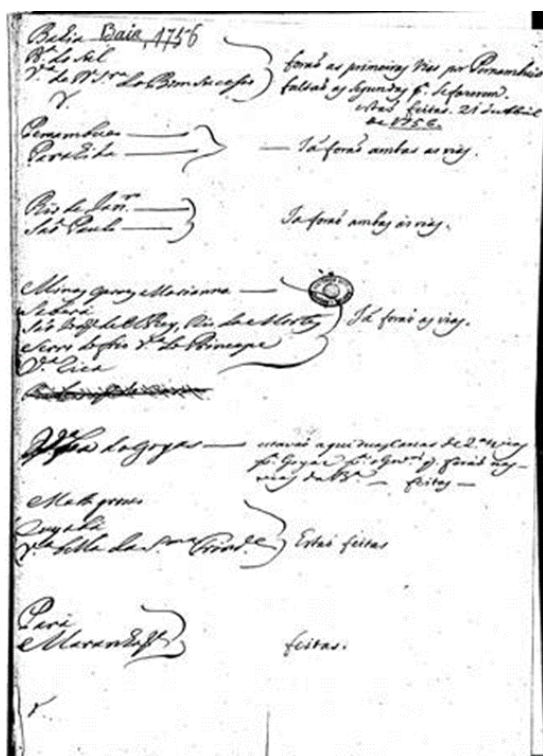 Bahia Baia, 1756
Rº. do Sul
Vª. de N. Srª. do Bom Sucesso
forаõ as primeiras vias por Pernambuco
faltaõ as segundas pª. se fazerem.
estaõ feitas. 21 de Abril
de 1756.
Pernambuco
Paraiba
Ja foraõ ambas as vias.
Rio de Janrº.
Saõ Paulo
Ja foraõ ambas as vias.
Minas Geraes Marianna
Sabará
Saõ Joze de El Rey, Rio das Mortes
Ja foraõ as vias.
Serro do frio Vª. do Principe
Vª. Rica
Vª. Boa de Goyas
estavaõ aqui duas Cartas de 2.as vias
pª. Goyaz
feitas
Matto groso
Cuyabá
Vª. bella da S.ma Trind.e
Estaõ feitas
Pará
Maranhaõ
feitas.